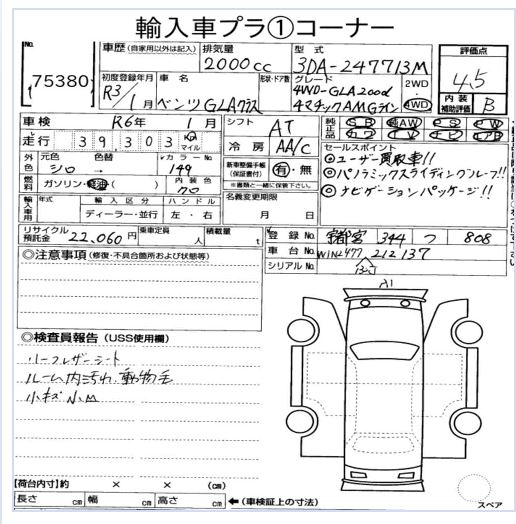 輸入車プラ①コーナー
No.
75380
車歴 (自家用以外は記入)
排気量
2000cc
型式
3DA-247713M
評価点
4.5
初度登録年月
R3/1月
車名
ベンツ GLAクラス
形状・ドア数
グレード
4WD-GLA200d
4マチックAMGライン
2WD
4WD
内装補助評価
B
車検 R6年 1月
走行 39303 Km マイル
シフト AT
冷房 AA/C
純正品 SR AW PS PW
純正品
外色 元色 色替 カラーNo.
シロ → 149
燃料 ガソリン・軽油( ) 内装色
クロ
新車整備手帳(保証書付) 有・無
※書類と一緒に保管下さい。
セールスポイント
◎ユーザー買取車!!
◎パノラミックスライディングルーフ!!
◎ナビゲーションパッケージ!!
輸入車用 年式 輸入区分 ハンドル
ディーラー・並行 左・右
名義変更期限
月 日
リサイクル預託金 22,060円
乗車定員 人
積載量 t
登録No. 宇都宮 344 つ 808
車台No. W1N2477 212137
シリアルNo.
◎注意事項 (修復・不具合個所および状態等)
A1
◎検査員報告 (USS使用欄)
ハーフレザーシート
ルーム内汚れ、動物毛
小キズ 小凹
【荷台内寸】約 × × (cm)
長さ cm 幅 cm 高さ cm ←(車検証上の寸法)
スペア